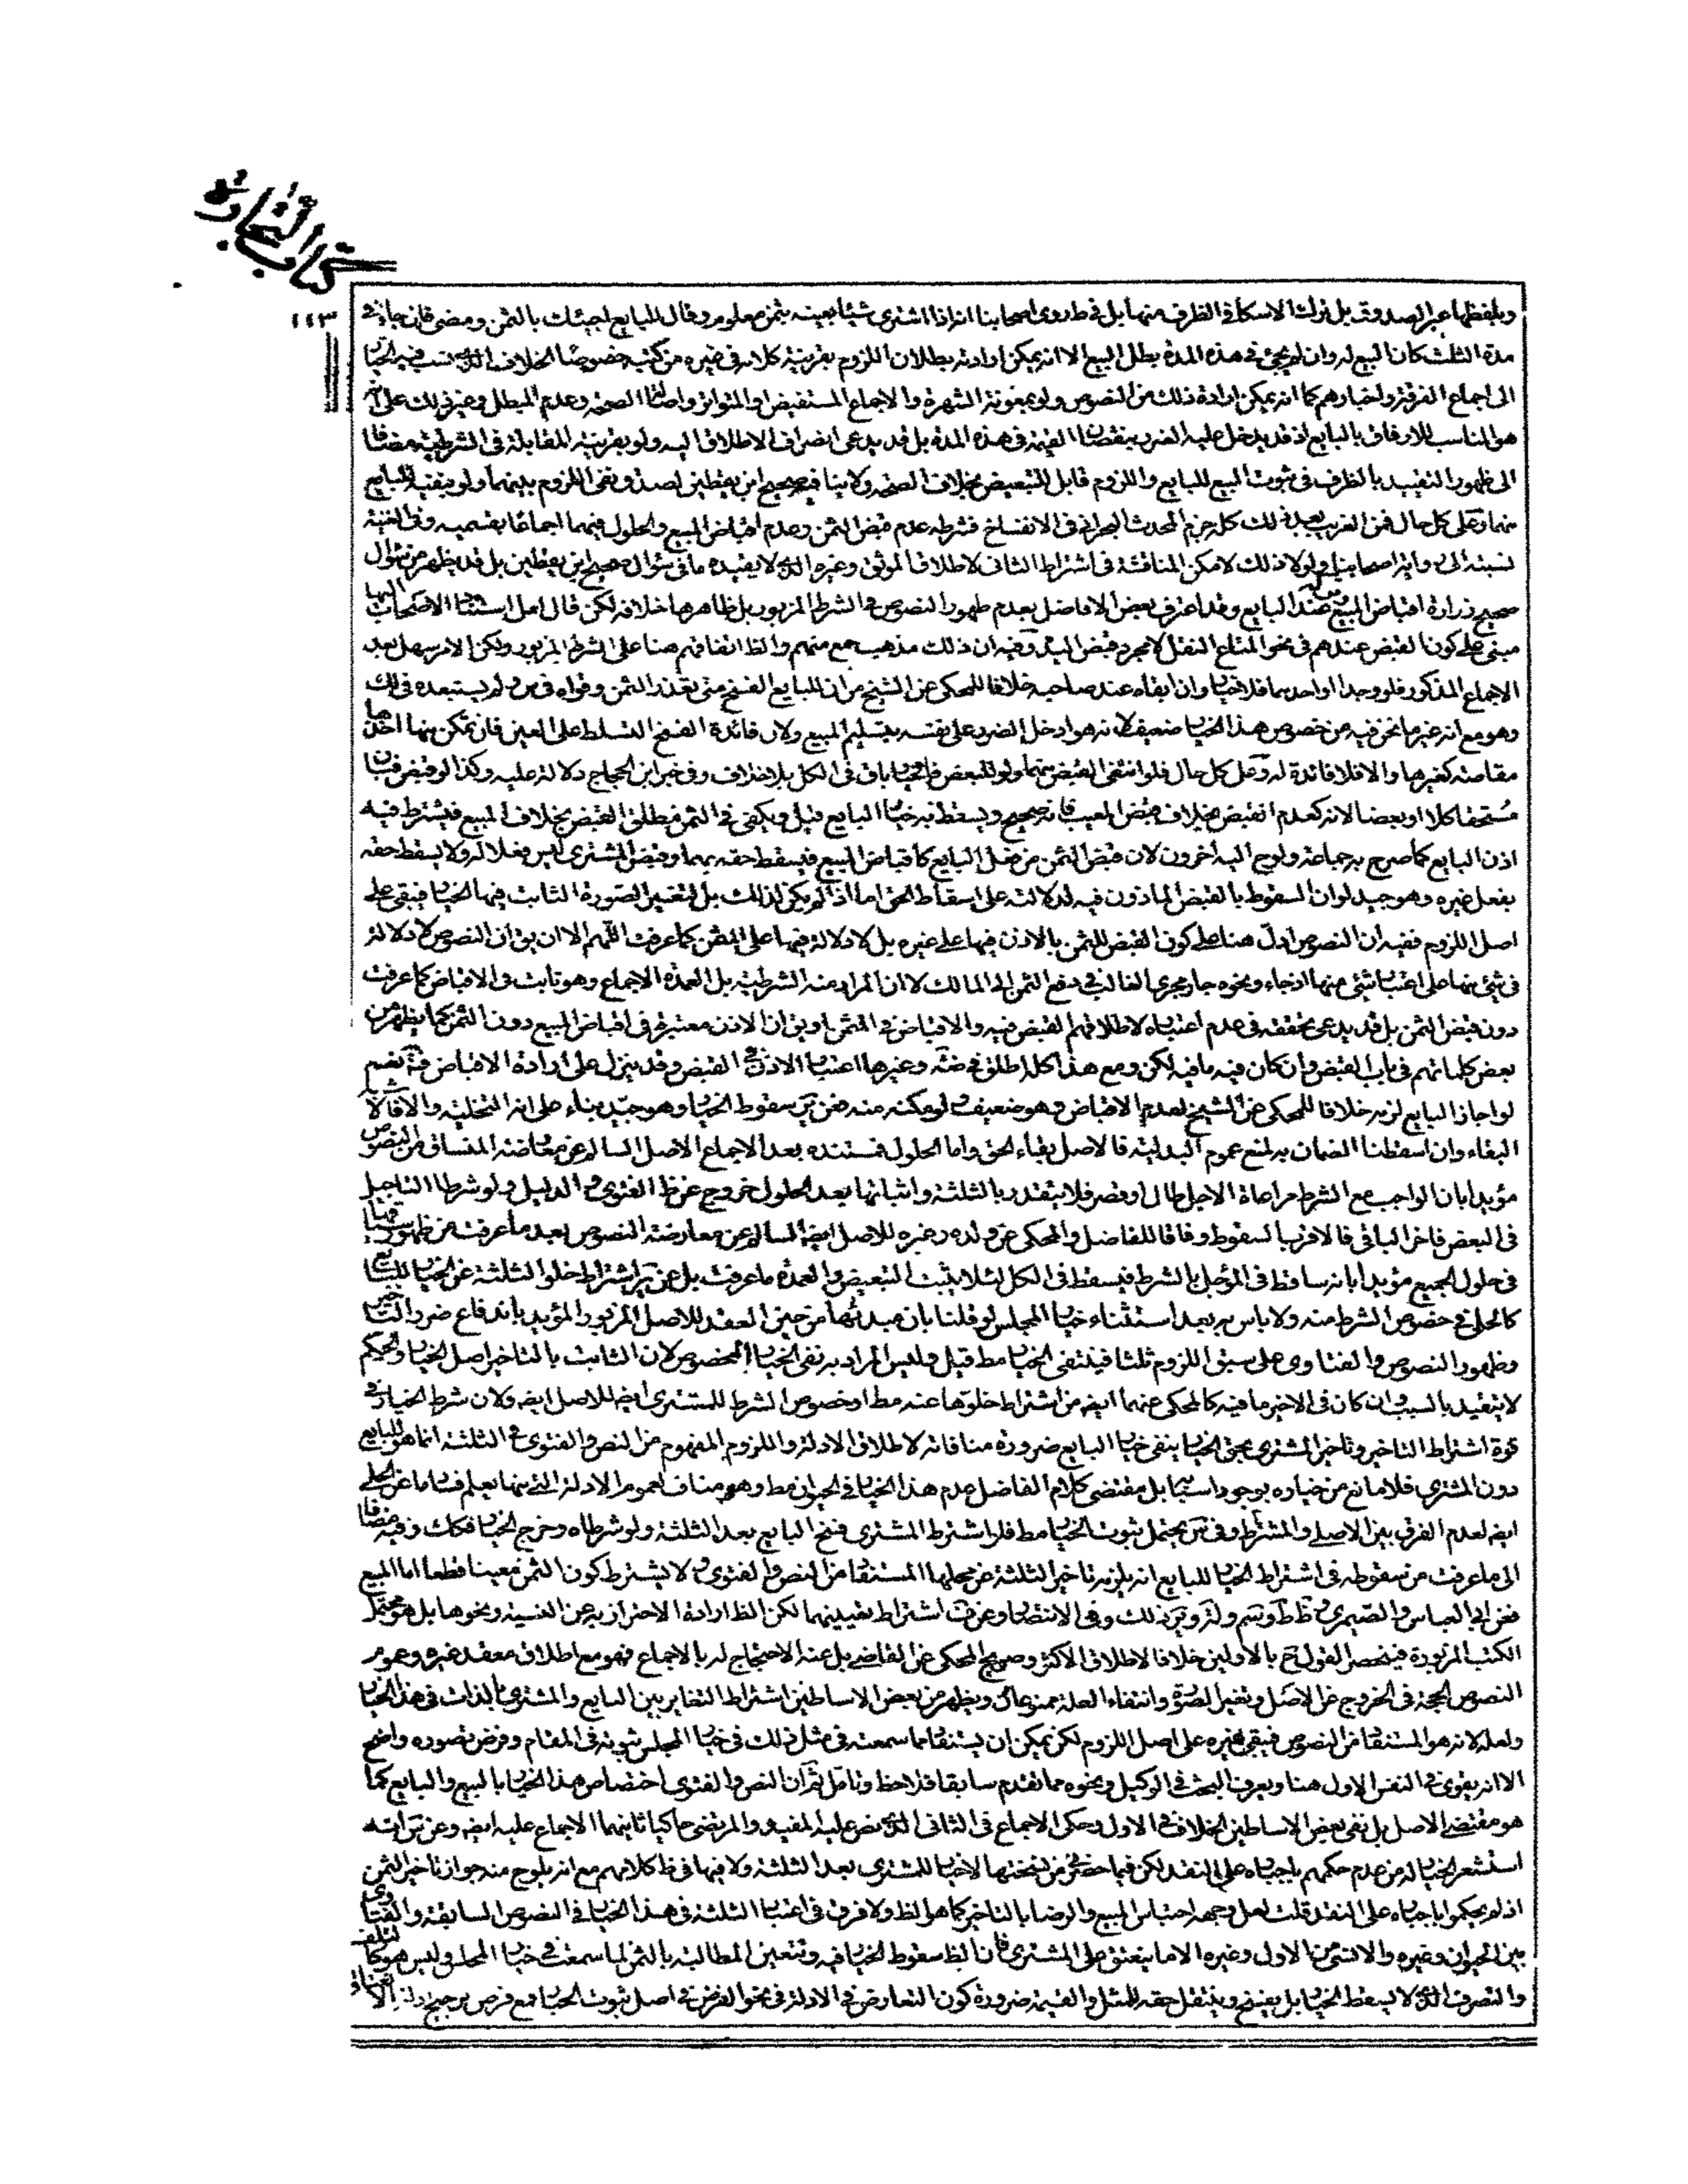 كتاب التجارة
٤٤٣
وبلفظها عبر الصدوق بل ترك الاسكافي الظرف منها بل في ط روى اصحابنا انه اذا اشترى شيئا بعينه بثمن معلوم وقال للبايع اجيئك بالثمن ومضى فان جاء في
مدة الثلث كان البيع له وان لم يجئ في هذه المدة بطل البيع الا انه يمكن ارادته بطلان اللزوم بقرينة كلامه في غيره من كتبه خصوصا الخلاف الذي نسب فيه الخيار
الى اجماع الفرقة واخبارهم كما انه يمكن ارادة ذلك من النصوص ولو بمعونة الشهرة والاجماع المستفيض او المتواتر واصالة الصحة وعدم المبطل وغير ذلك على انه
هو المناسب للارفاق بالبايع اذ قد يدخل عليه الضرر بنقصان القيمة في هذه المدة بل قد يدعى انصراف الاطلاق اليه ولو بقرينة المقابلة في الشرطية مضافا
الى ظهور التقييد بالظرف في ثبوت البيع للبايع واللزوم قابل للتبعيض بخلاف الصحة ولا ينافيه صحيح ابن يقطين لصدق نفي اللزوم بينهما ولو بنفيه للبايع
منهما وعلى كل حال فمن الغريب بعد ذلك كله جزم المحدث البحراني في الانفساخ فشرطه عدم قبض الثمن وعدم اقباض المبيع والحلول فيهما اجماعا بقسميه وفي الغنية
نسبته الى رواية اصحابنا ولولا ذلك لامكن المناقشة في اشتراط الثاني لاطلاق الموثق وغيره الذي لا يقيده ما في سؤال صحيح ابن يقطين بل قد يظهر من سؤال
صحيح زرارة اقباض المبيع عند البايع وقد اعترف بعض الافاضل بعدم ظهور النصوص في الشرط المزبور بل ظاهرها خلافه لكن قال لعل استناد الاصحاب اليها
مبني على كون القبض عندهم في نحو المتاع النقل لا مجرد قبض اليد وفيه ان ذلك مذهب جمع منهم والظ اتفاقهم هنا على الشرط المزبور ولكن الامر سهل بعد
الاجماع المذكور فلو وجدا او احدهما فلا خيار وان ابقاه عند صاحبه خلافا للمحكي عن الشيخ من ان للبايع الفسخ متى تعذر الثمن وقواه في س ولم يستبعده في لك
وهو مع انه غير ما نحن فيه من خصوص هذا الخيار ضعيف لانه هو ادخل الضرر على نفسه بتسليم المبيع ولان فائدة الفسخ التسلط على العين فان تمكن منها اخذها
مقاصة كغيرها والا فلا فائدة له وعلى كل حال فلو انتفى القبض منهما ولو للبعض فالخيار باق في الكل بلا خلاف وفي خبر ابن الحجاج دلالة عليه وكذا لو قبض فبان
مستحقا كلا او بعضا لانه كعدم القبض بخلاف قبض المعيب فانه صحيح ويسقط به خيار البايع قيل ويكفي في الثمن مطلق القبض بخلاف المبيع فيشترط فيه
اذن البايع كما صرح به جماعة ولوح اليه اخرون لان قبض الثمن من فعل البايع كاقباض المبيع فيسقط حقه بهما وقبض المشتري ليس فعلا له ولا يسقط حقه
بفعل غيره وهو جيد لو ان السقوط بالقبض الماذون فيه لدلالته على اسقاط الحق اما اذا لم يكن لذلك بل لتغيير الصورة الثابت فيها الخيار فيبقى على
اصل اللزوم ففيه ان النصوص ادل هنا على كون القبض للثمن بالاذن فيها على غيره بل لا دلالة فيها على الثمن كما عرفت اللهم الا ان يق ان النصوص لا دلالة
في شئ منها على اعتبار شئ منها اذ جاء ونحوه جار مجرى الغالب في دفع الثمن الى المالك لا ان المراد منه الشرطية بل العمدة الاجماع وهو ثابت في الاقباض كما عرفت
دون قبض الثمن بل قد يدعى تحققه في عدم اعتباره لاطلاقهم القبض فيه والاقباض في المثمن او يق ان الاذن معتبرة في اقباض المبيع دون الثمن كما يظهر من
بعض كلماتهم في باب القبض وان كان فيه ما فيه لكن ومع هذا كله اطلق في ضة وغيرها اعتبار الاذن في القبض وقد ينزل على ارادة الاقباض فيه نعم
لو اجاز البايع لزم خلافا للمحكي عن الشيخ لعدم الاقباض وهو ضعيف ولو مكنه منه فعن كره سقوط الخيار وهو جيد بناء على انه التخلية والا فالاشبه
البقاء وان اسقطنا الضمان به لمنع عموم البدلية فالاصل بقاء الحق واما الحلول فمستنده بعد الاجماع الاصل السالم عن معارضة المنساق من النصوص
مؤيدا بان الواجب مع الشرط مراعاة الاجل طال او قصر فلا يتقدر بالثلثة واثباتها بعد الحلول خروج عن ظ الفتوى والدليل ولو شرطا التاجيل
في البعض فاخر الباقي فالاقرب السقوط وفاقا للفاضل والمحكي عن ولده وغيره للاصل ايضا السالم عن معارضة النصوص بعد ما عرفت من ظهور سياقها
في حلول الجميع مؤيدا بانه ساقط في المؤجل بالشرط فيسقط في الكل لئلا يثبت التبعيض والعمدة ما عرفت بل عن ير اشتراط خلو الثلثة عن الخيار للبايع
كالحلي في خصوص الشرط منه ولا باس به بعد استثناء خيار المجلس لو قلنا بان مبدئها من حين العقد للاصل المزبور المؤيد باندفاع ضرر التاخير
وظهور النصوص والفتاوى على سبق اللزوم ثلثا فينتفي الخيار مط قبل وليس المراد به نفي الخيار المخصوص لان الثابت بالتاخير اصل الخيار والحكم
لا يتقيد بالسبب وان كان في الاخير ما فيه كالمحكي عنهما ايضا من اشتراط خلوها عنه مط او خصوص الشرط للمشتري ايضا للاصل ايضا ولان شرط الخيار في
قوة اشتراط التاخير وتاخير المشتري بحق الخيار ينفي خيار البايع ضرورة منافاته لاطلاق الادلة واللزوم المفهوم من النص والفتوى في الثلثة انما هو للبايع
دون المشتري فلا مانع من خياره بوجود اسبابه بل مقتضى كلام الفاضل عدم هذا الخيار في الحيوان مط وهو مناف لعموم الادلة التي منها يعلم فساد ما عن الحلي
ايضا لعدم الفرق بين الاصلي والمشترط وفي ير يحتمل ثبوت الخيار مط فلو اشترط المشتري فسخ البايع بعد الثلثة ولو شرطاه وخرج الخيار فكك وفيه مضافا
الى ما عرفت من سقوطه في اشتراط الخيار للبايع انه يلزمه تاخير الثلثة عن محلها المستفاد من النص والفتوى ولا يشترط كون الثمن معينا قطعا اما المبيع
فعن ابي العباس والصيمري ذلك وفي الانتصار اشتراط تعيينهما لكن الظ ارادة الاحتراز به عن النسية ونحوها بل هو محتمل
الكتب المزبورة فينحصر القول ح بالاولين خلافا لاطلاق الاكثر وصريح المحكي عن القاضي بل عنه الاحتجاج له بالاجماع فهو مع اطلاق معقد غيره وعموم
النصوص الحجة في الخروج عن الاصل وتغير الصورة وانتفاء العلة ممنوعان ويظهر من بعض الاساطين اشتراط التغاير بين البايع والمشتري بالذات في هذا الخيار
ولعله لانه هو المستفاد من النصوص فيبقى غيره على اصل اللزوم لكن يمكن ان يستفاد مما سمعته في مثل ذلك في خيار المجلس ثبوته في المقام وفرض تصوره واضح
الا انه يقوى في النفس الاول هنا ويعرف البحث في الوكيل ونحوه مما تقدم سابقا فلاحظ وتامل ثم ان النص والفتوى اختصاص هذا الخيار بالبيع والبايع كما
هو مقتضى الاصل بل نفى بعض الاساطين الخلاف في الاول وحكى الاجماع في الثاني الذي نص عليه المفيد والمرتضى حاكيا ثانيهما الاجماع عليه ايضا وعن ير انه
استشعر الخيار له من عدم حكمهم باجباره على النقد لكن فيما حضرني من نسختها لا خيار للمشتري بعد الثلثة ولا فيها في ظ كلامهم مع انه يلوح منه جواز تاخير الثمن
اذ لم يحكموا باجباره على النقد قلت لعل وجهه احتباس المبيع والرضا بالتاخير كما هو الظ ولا فرق في اعتبار الثلثة في هذا الخيار في النصوص السابقة والفتاوى
بين الحيوان وغيره والانثى من الاول وغيره الا ما ينعتق على المشتري فان الظ سقوط الخيار فيه وتتعين المطالبة بالثمن لما سمعت في خيار المجلس وليس هو كالتلف
والتصرف الذي لا يسقط الخيار بل يفسخ وينتقل حقه للمثل والقيمة ضرورة كون التعارض في الادلة في نحو الفرض في اصل ثبوت الخيار فمع فرض ترجيح ادلة الانعتاق